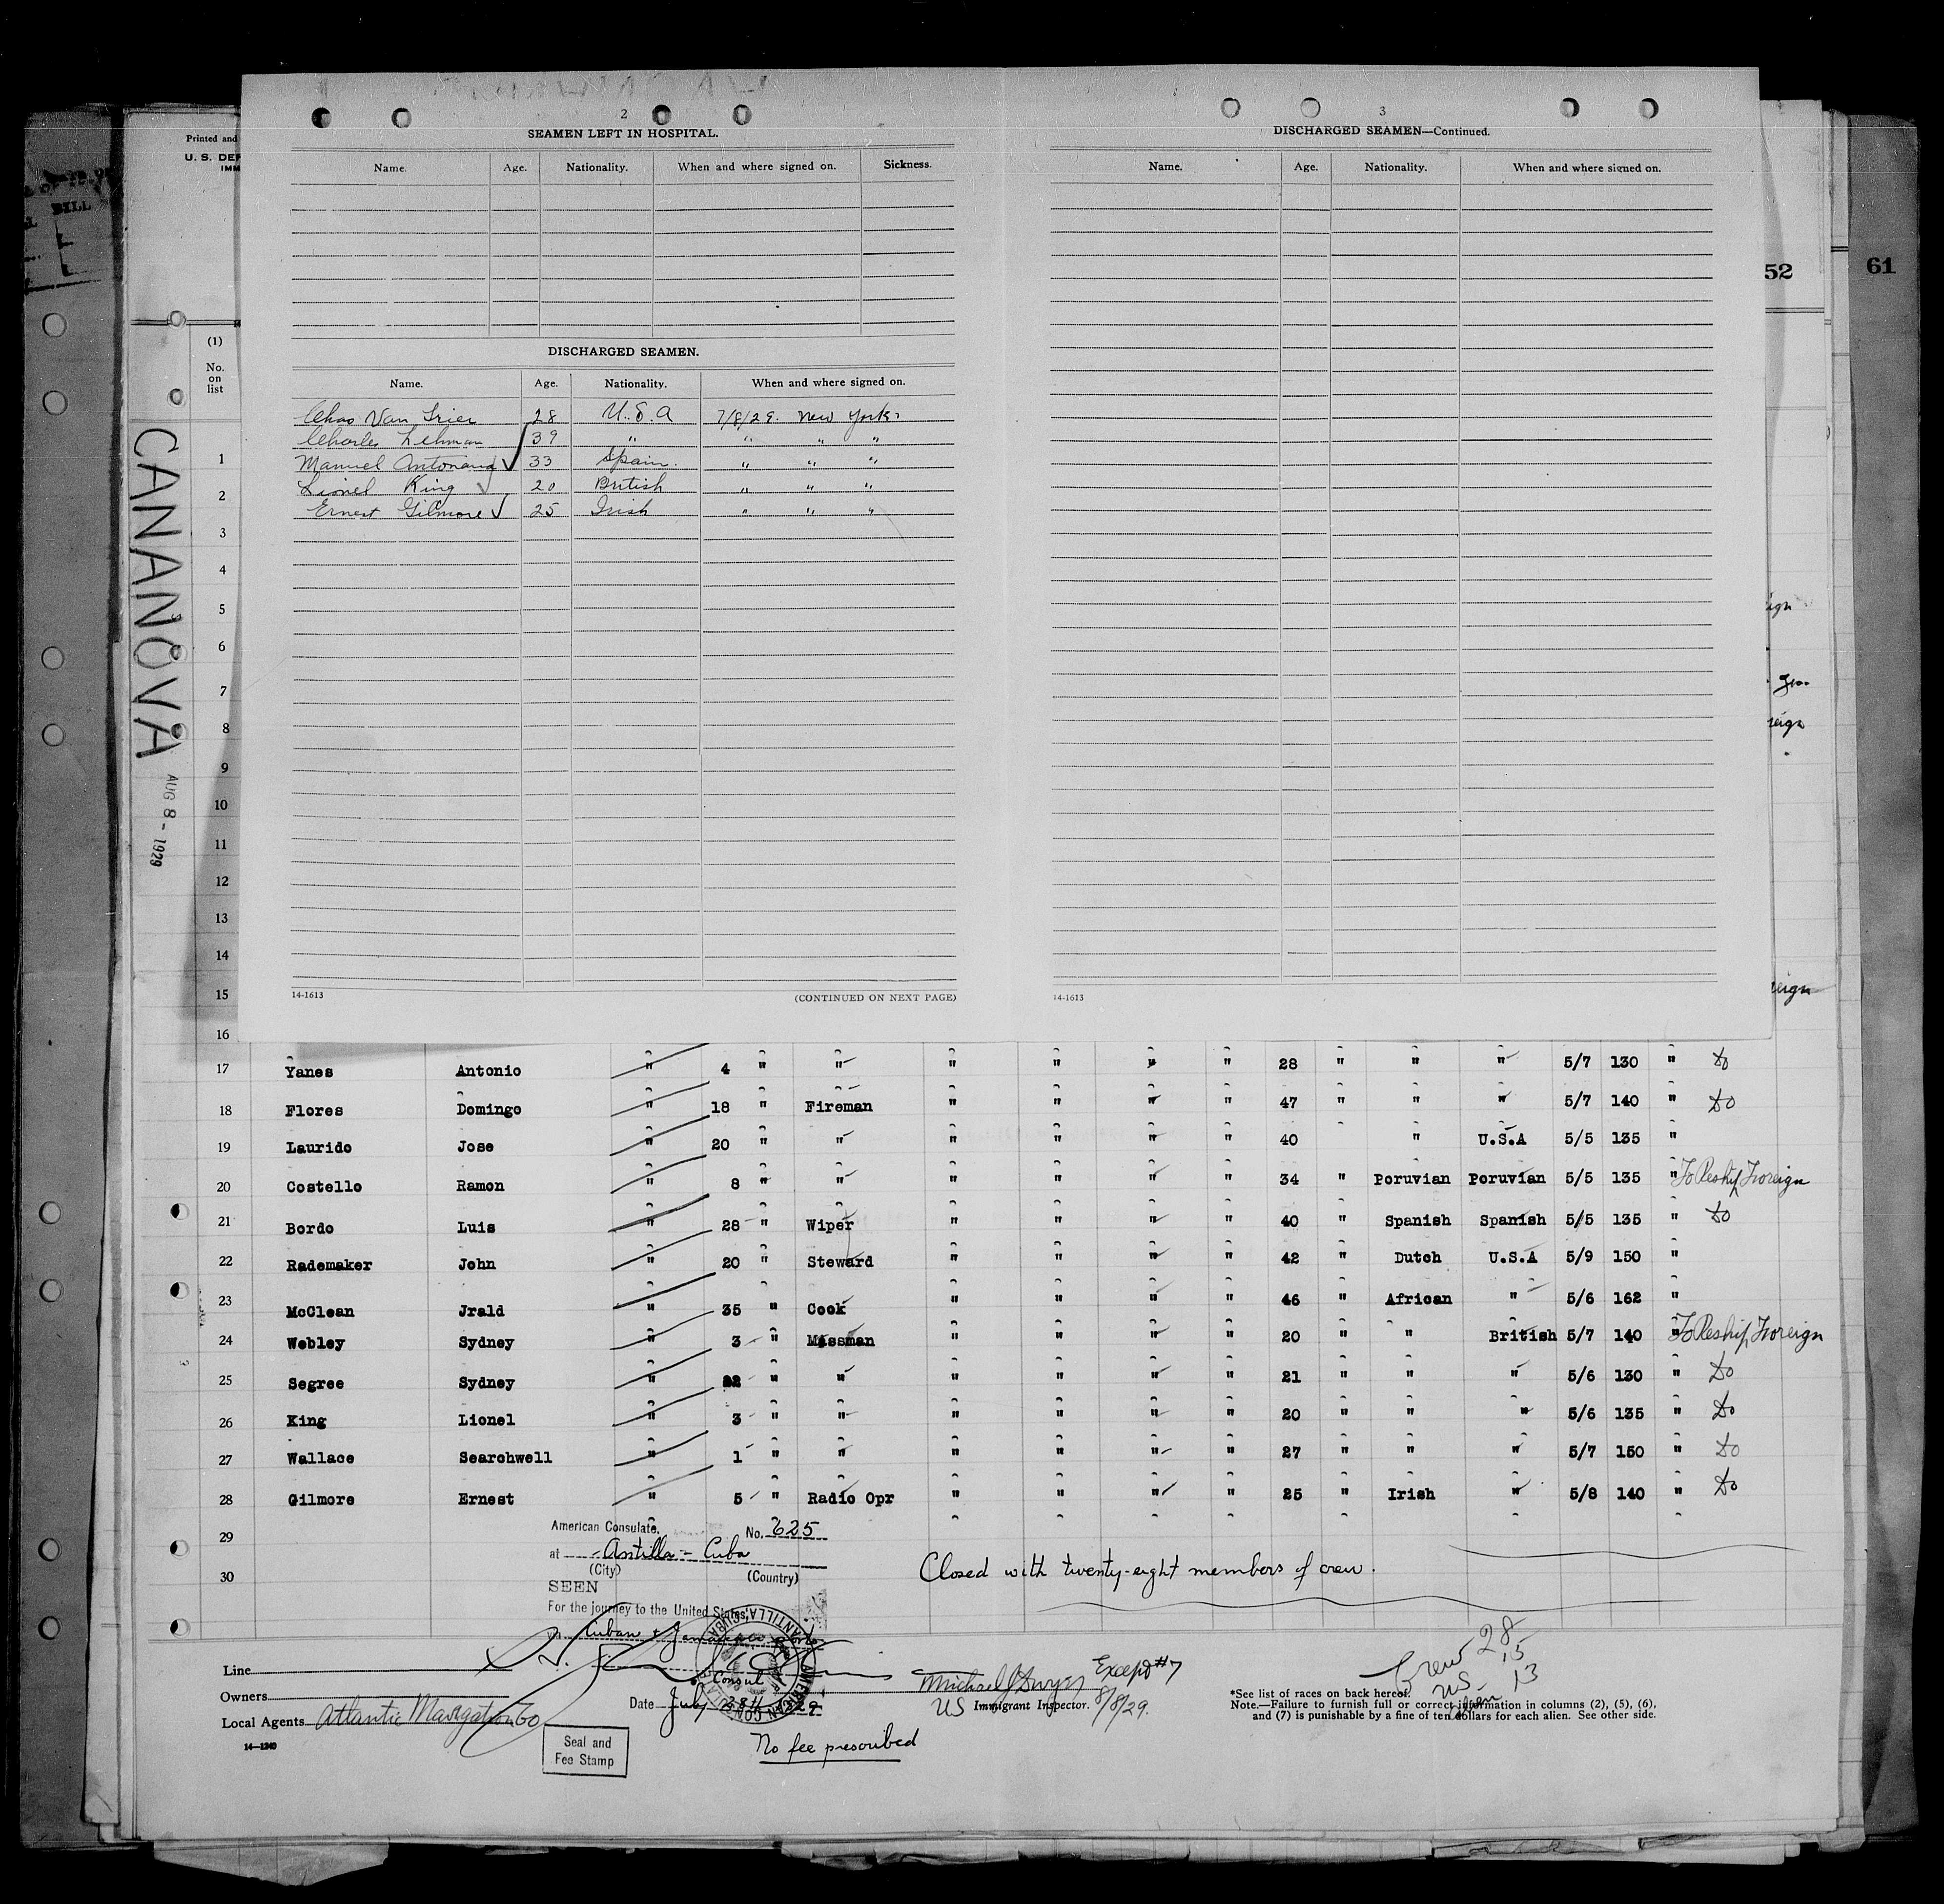 2
SEAMEN LEFT IN HOSPITAL.
Name. Age. Nationality. When and where signed on. Sickness.
DISCHARGED SEAMEN.
Name. Age. Nationality. When and where signed on.
Chas Van Trier 28 U.S.A 7/8/29. New York.
Charles Lehman 39 " " " "
Manuel 33 Spain. " " "
Lionel King 20 British " " "
Ernest Gilmore 25 Irish " " "
14-1613 (CONTINUED ON NEXT PAGE)
3
DISCHARGED SEAMEN—Continued.
Name. Age. Nationality. When and where signed on.
14-1613
BILL
Printed and
U. S. DEP
IMM
52
61
(1)
No.
on
list
CANANOVA
AUG 8 - 1929
1
2
3
4
5
6
7
8
9
10
11
12
13
14
15
16
17 Yanes Antonio " 4 " " " " " " 28 " " " 5/7 130 " Do
18 Flores Domingo " 18 " Fireman " " " " 47 " " " 5/7 140 " Do
19 Laurido Jose " 20 " " " " " " 40 " U.S.A 5/5 135 "
20 Costello Ramon " 8 " " " " " " 34 " Poruvian Poruvian 5/5 135 " To Reship Foreign
21 Bordo Luis " 28 " Wiper " " " " 40 " Spanish Spanish 5/5 135 " Do
22 Rademaker John " 20 " Steward " " " " 42 " Dutch U.S.A 5/9 150 "
23 McClean Jrald " 35 " Cook " " " " 46 " African " 5/6 162 "
24 Webley Sydney " 3 " Messman " " " " 20 " " British 5/7 140 " To Reship Foreign
25 Segree Sydney " 22 " " " " " " 21 " " " 5/6 130 " Do
26 King Lionel " 3 " " " " " " 20 " " " 5/6 135 " Do
27 Wallace Searchwell " 1 " " " " " " 27 " " " 5/7 150 " Do
28 Gilmore Ernest " 5 " Radio Opr " " " " 25 " Irish " 5/8 140 " Do
29
30
American Consulate, No. 625
at Antilla - Cuba
(City) (Country)
SEEN
For the journey to the United States,
via Cuban & Jamaican ports
Consul
AMERICAN CONSULATE ANTILLA, CUBA
Date July 28th 1929
Closed with twenty-eight members of crew.
Line
Owners
Local Agents Atlantic Navigation Co
14-1240
Seal and
Fee Stamp
No fee prescribed
Except #7
US Immigrant Inspector. 8/8/29.
Crew 28
US 15
Alien 13
*See list of races on back hereof.
Note.—Failure to furnish full or correct information in columns (2), (5), (6),
and (7) is punishable by a fine of ten dollars for each alien. See other side.